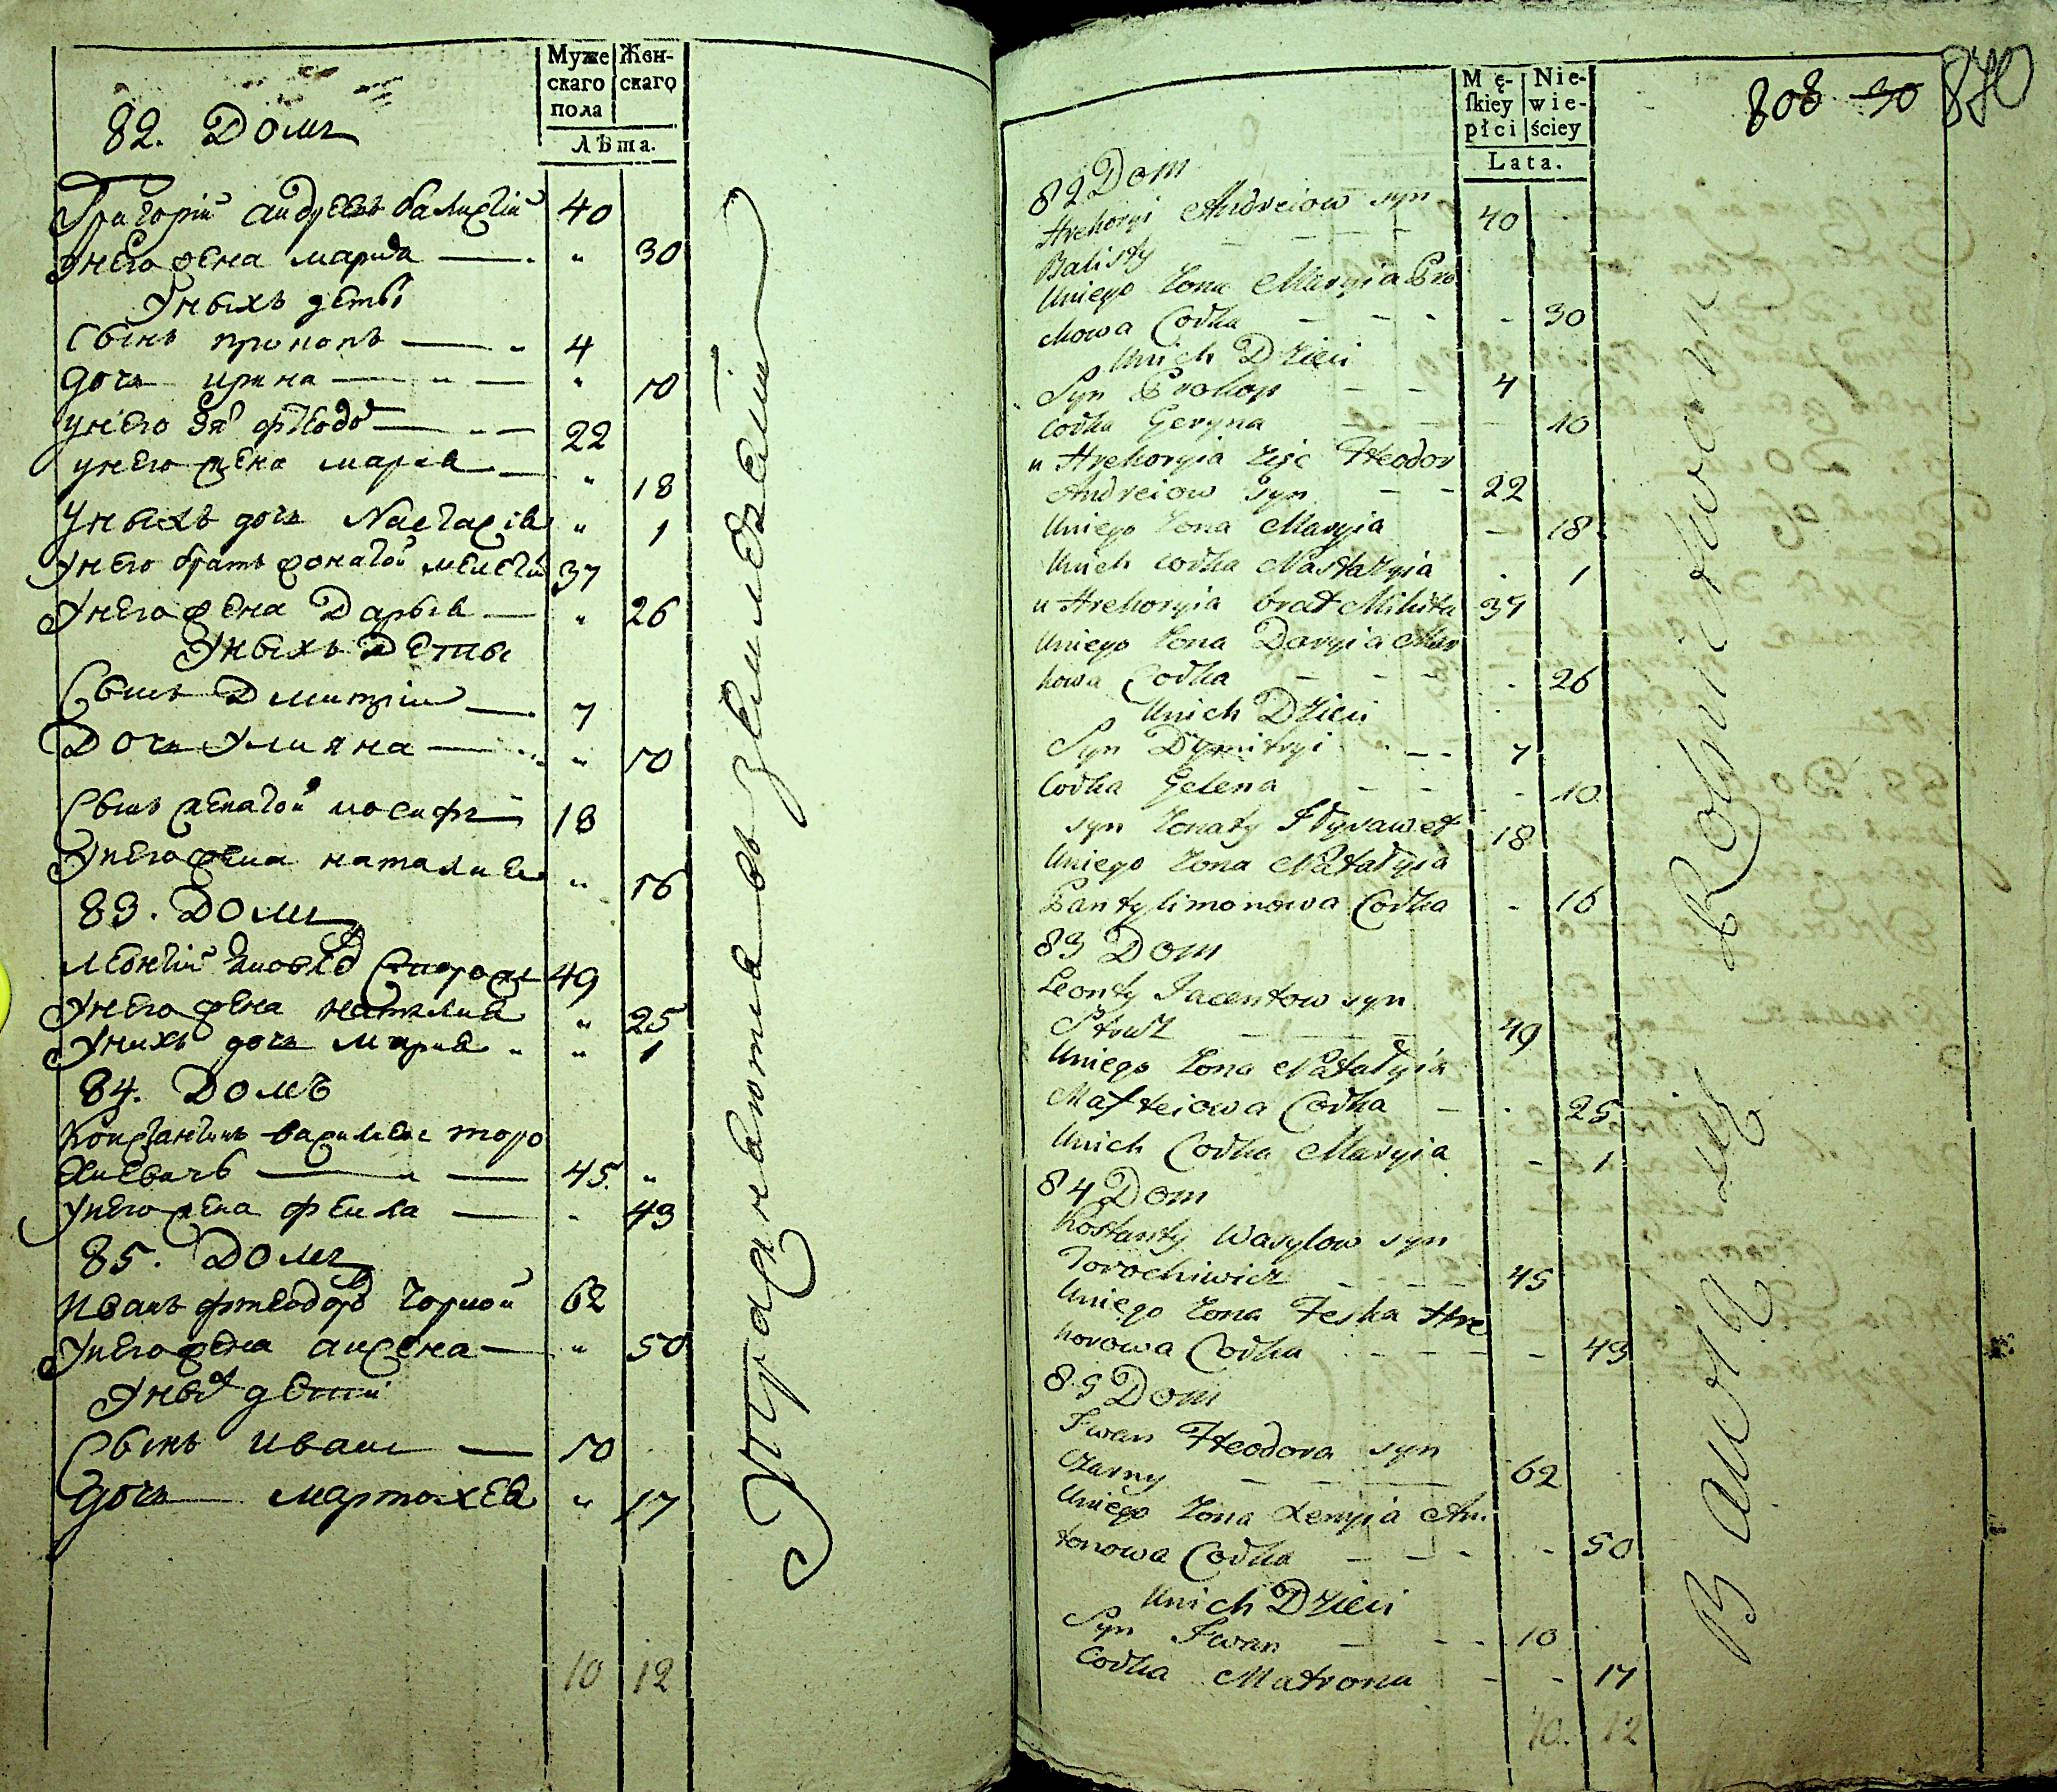 Муже Жен-
скаго скаго
пола
Лѣта.
82. Домъ
Григорій андреевъ балистій 40
унего жена мария — „ 30
Уныхъ деты
Сынъ прикопъ — 4
дочь ирина — „ 10
унего зя ѳѣодо — 22
унего жена мария — „ 18
Уныхъ дочь Настасія „ 1
Унего братъ женатой 37
Унего жена Дарыя — „ 26
Уныхъ Деты
Сынъ Дмитрій — 7
Дочь Улияна — „ 10
Сынъ женатой иосифъ 18
Унего жена наталия „ 16
83. Домъ
Леонтій 49
Унего жена наталия „ 25
Унихъ дочь мария „ „ 1
84. Домъ
Константинъ василевъ торо
хиевичъ — „ — 45. „
Унего жена феила — „ 43
85. Домъ
Иванъ фтеодоръ Чорной 62
Унего жена аксена — „ 50
Уных детій
Сынъ иванъ — 10
дочь мартохва „ 17
10 12
Упражняются въ земледелій
Mę- Nie-
ſkiey wie-
płci ściey
Lata.
808 30 870
82 Dom
Hrehoryi Andreiow syn 40
Balisty
Uniego Zona Maryia Pro
chowa Codka - - - - 30
Unich Dzieci
Syn Prokop - - 4
Codka Geryna - - 10
u Hrehoryia Zięc Hteodor
Andreiow Syn - - 22
Uniego Zona Maryia - 18
Unich codka Nastazyia . 1
u Hrehoryia brat Mikita 37
Uniego Zona Daryia Mar
kowa Codka - - - . 26
Unich Dzieci
Syn Dymitryi - - 7
Codka Gelena - - - 10
syn Zonaty 18
Uniego Zona Natalyia
Pantylimonowa Codka - 16
83 Dom
Leonty Jacentow syn
49
Uniego Zona Natalyia
Mafteiowa Codka - . 25
Unich Codka Maryia - 1
84 Dom
Kostanty Wasylow syn
Torochiwicz - - - 45
Uniego Zona Feska Hre
horowa Codka - - - - 43
85 Dom
Iwan Hteodora syn
Czarny - - - 62
Uniego Zona Xenyia An
tonowa Codka - - - - 50
Unich Dzieci
Syn Iwan - - - 10
Codka Matrona - - 17
10. 12
Bawią się Rolnictwem